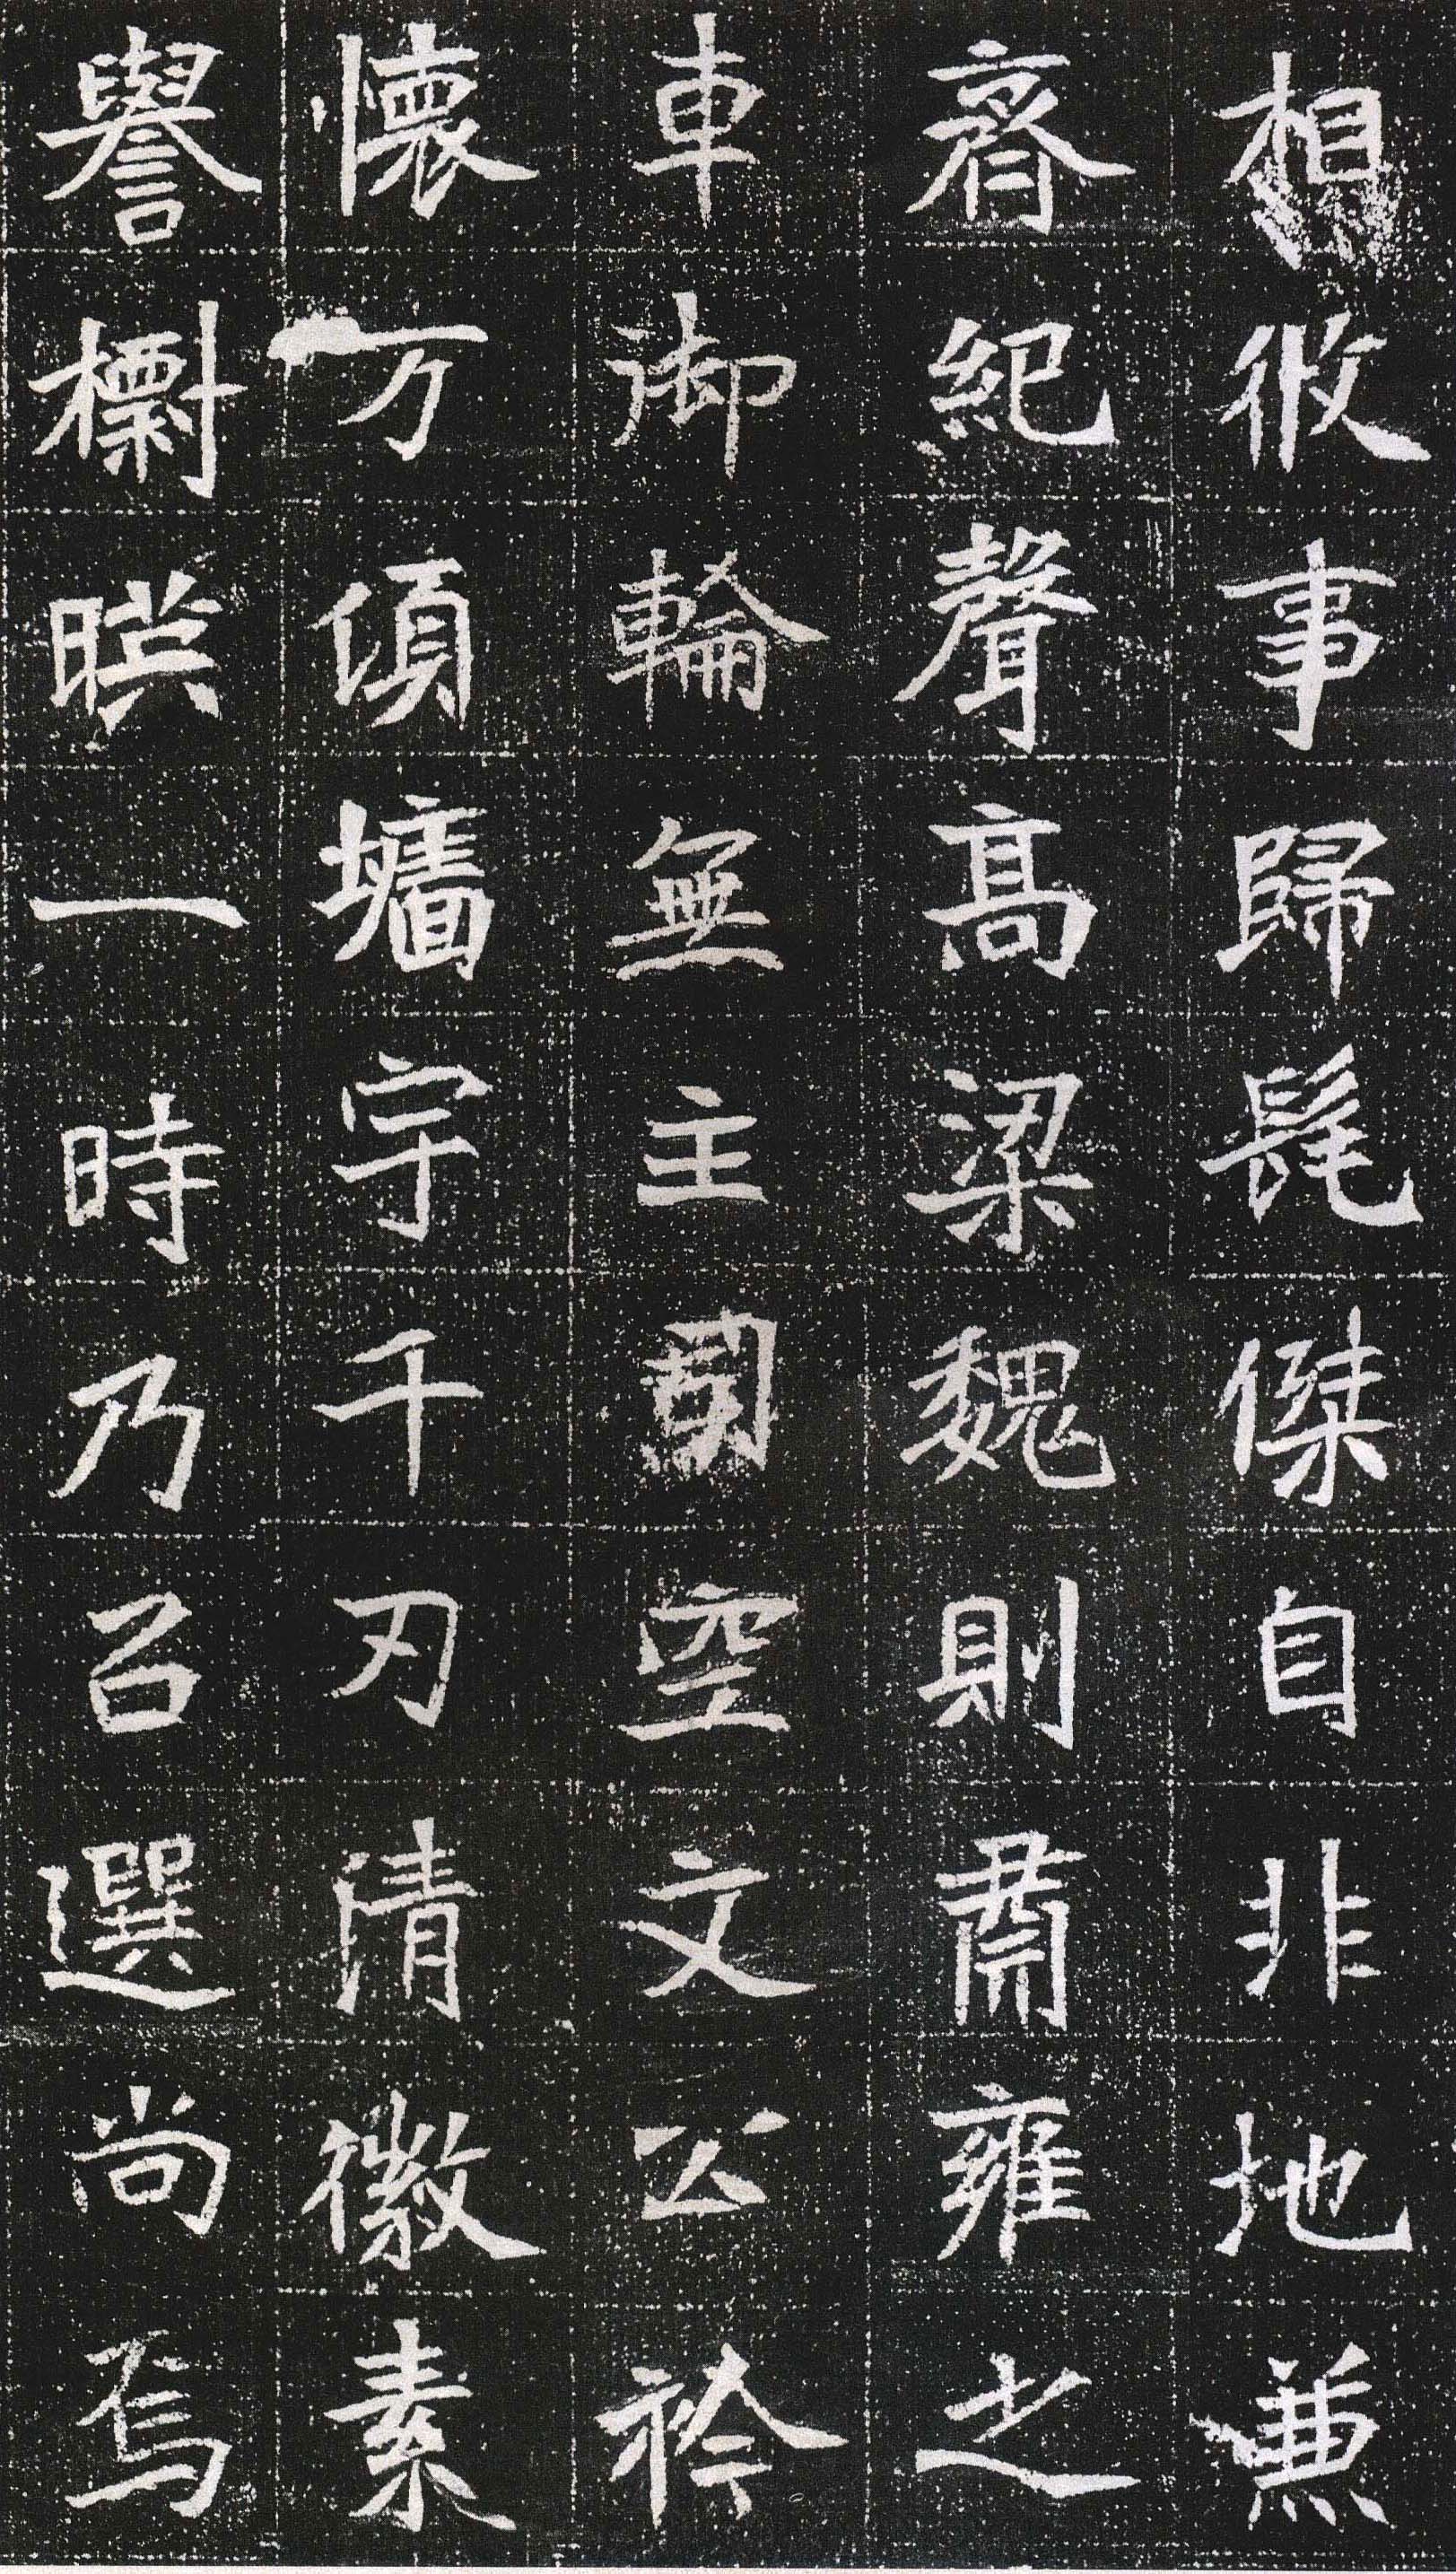 相攸事歸髦傑自非地兼
齊紀聲高梁魏則肅雍之
車御輪無主空文公衿
懷万頃墻宇千刃清徽素
譽檦暎一時乃召選尚焉